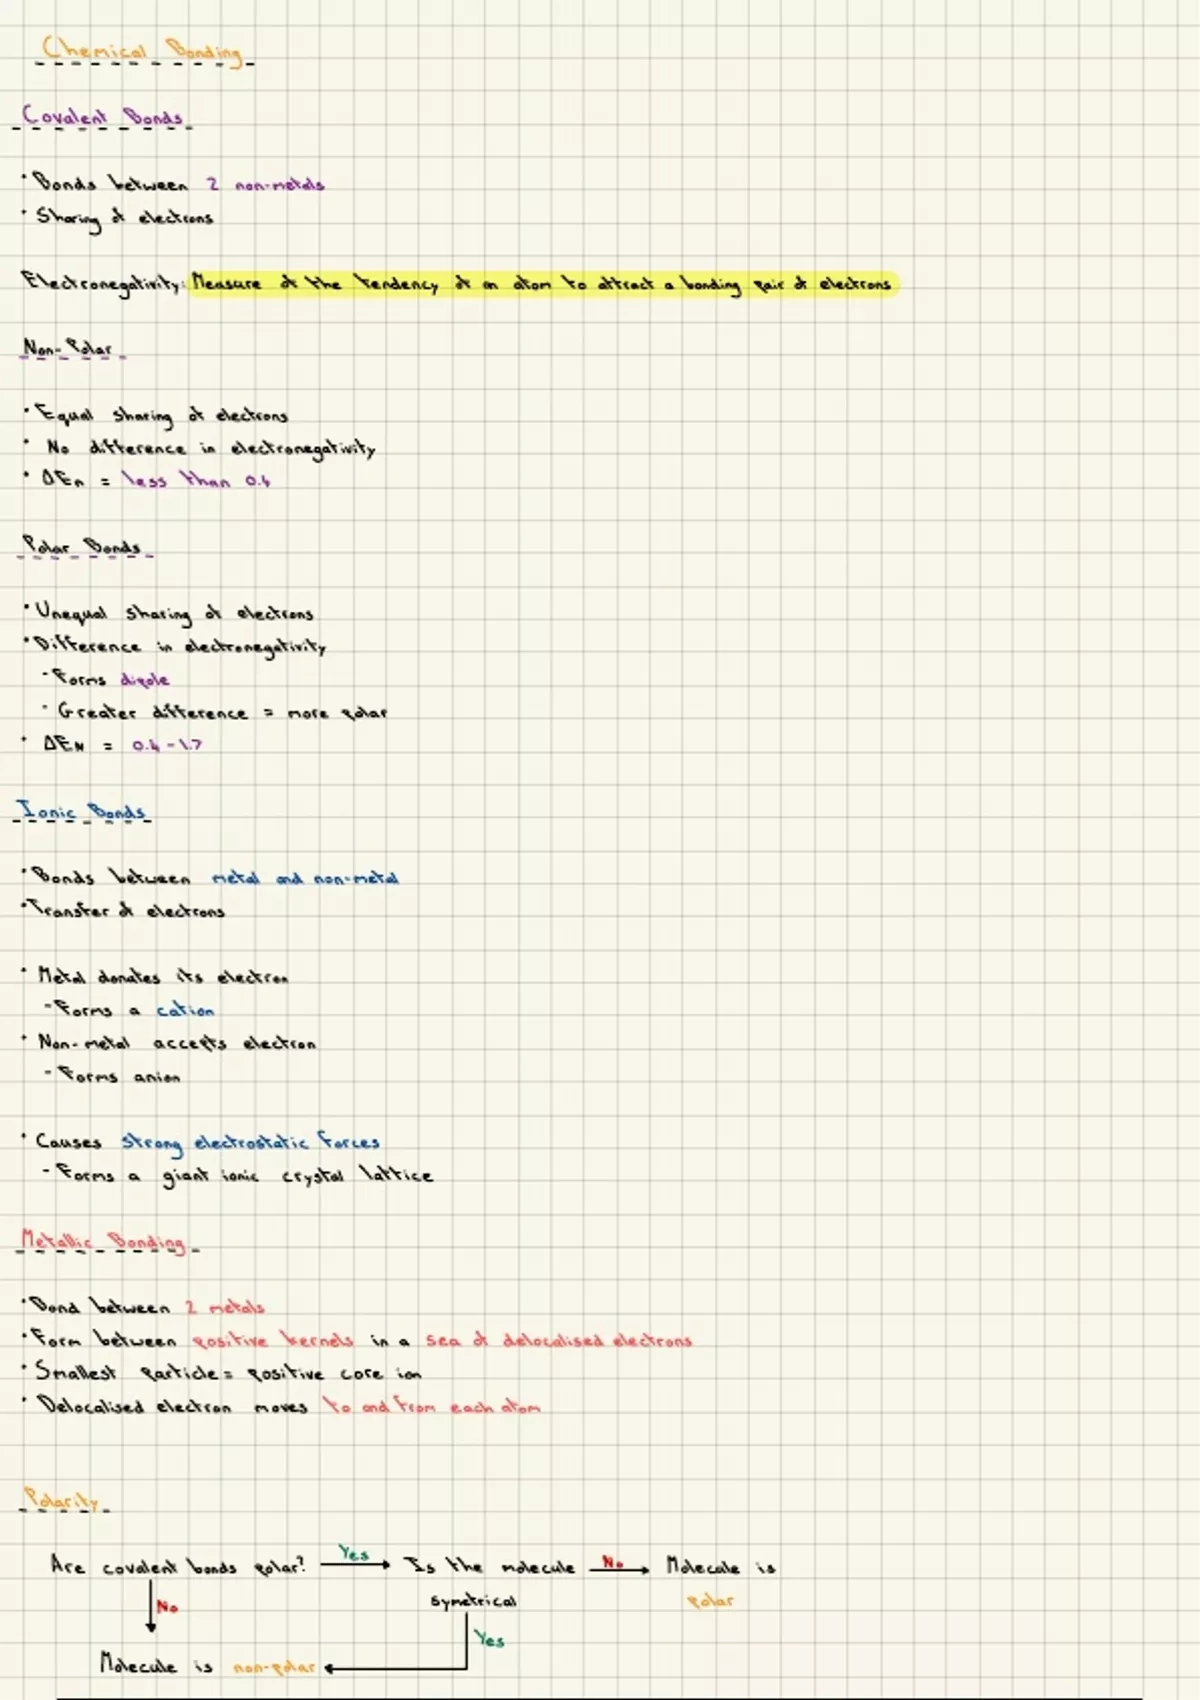 Chemical Bonding
Covalent Bonds
• Bonds between 2 non-metals
• Sharing of electrons
Electronegativity: Measure of the tendency of an atom to attract a bonding pair of electrons
Non-Polar
• Equal sharing of electrons
• No difference in electronegativity
• ΔEn = less than 0.4
Polar Bonds
• Unequal sharing of electrons
• Difference in electronegativity
- Forms dipole
- Greater difference = more polar
• ΔEN = 0.4-1.7
Ionic Bonds
• Bonds between metal and non-metal
• Transfer of electrons
• Metal donates its electron
- Forms a cation
• Non-metal accepts electron
- Forms anion
• Causes strong electrostatic forces
- Forms a giant ionic crystal lattice
Metallic Bonding
• Bond between 2 metals
• Form between positive kernels in a sea of delocalised electrons
• Smallest particle = positive core ion
• Delocalised electron moves to and from each atom
Polarity
Are covalent bonds polar? Yes Is the molecule No Molecule is
symetrical polar
No
Yes
Molecule is non-polar